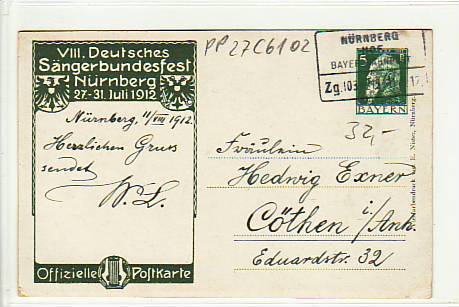 VIII. Deutsches
Sängerbundesfest
Nürnberg
27.-31. Juli 1912
Nürnberg, 11/VIII 1912
Herzlichen Gruss
sendet
W. L.
Offizielle Postkarte
PP 27C6102
NÜRNBERG
HOF
Zg.
5
BAYERN
32,-
Fräulein
Hedwig Exner
Cöthen i/Anh.
Eduardstr. 32
E. Nister, Nürnberg.